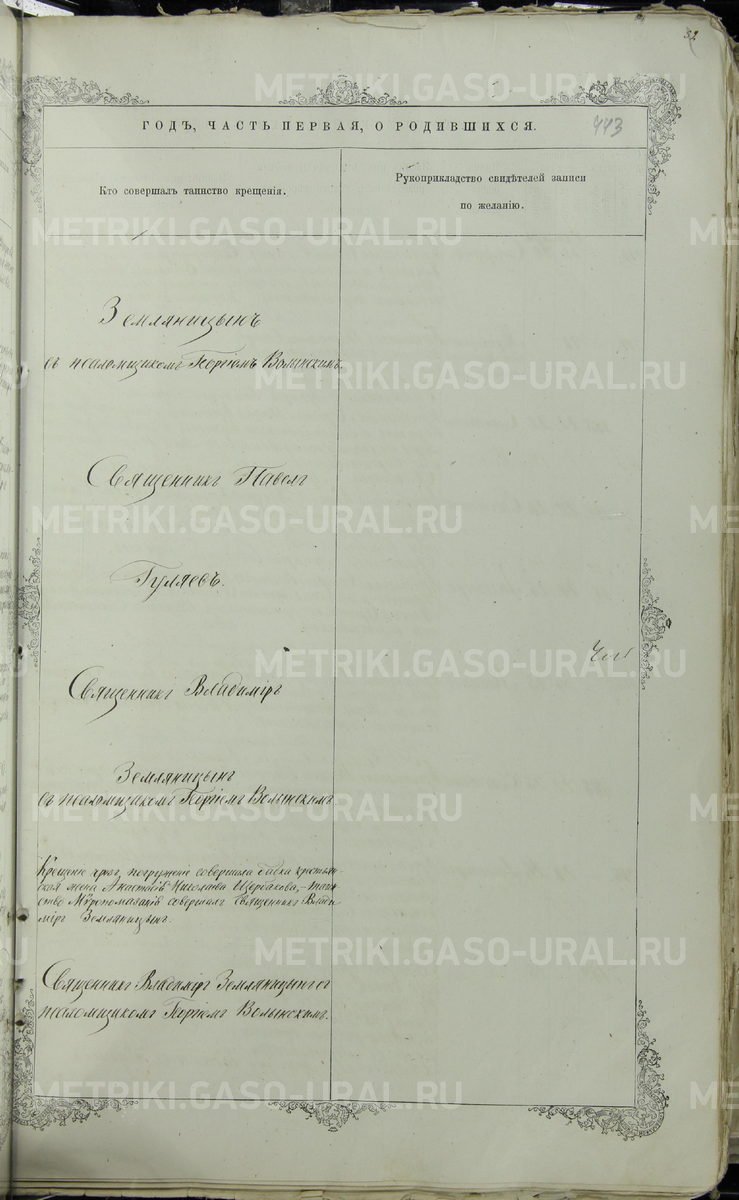 32
ГОДЪ, ЧАСТЬ ПЕРВАЯ, О РОДИВШИХСЯ.
443
Кто совершалъ таинство крещенія.
Рукоприкладство свидѣтелей записи
по желанію.
Земляницынъ
съ псаломщикомъ Георгіемъ Волынскимъ.
Священникъ Павелъ
Гуляевъ.
Священникъ Владиміръ
Земляницынъ
съ псаломщикомъ Георгіемъ Волынскимъ
Крещеніе чрезъ погруженіе совершала бабка крестьян-
ская жена Анастасія Николаева Щербакова, – таин-
ство Мѵропомазанія совершилъ священникъ Влади-
міръ Земляницынъ.
Священникъ Владиміръ Земляницынъ съ
псаломщикомъ Георгіемъ Волынскимъ.
METRIKI.GASO-URAL.RU